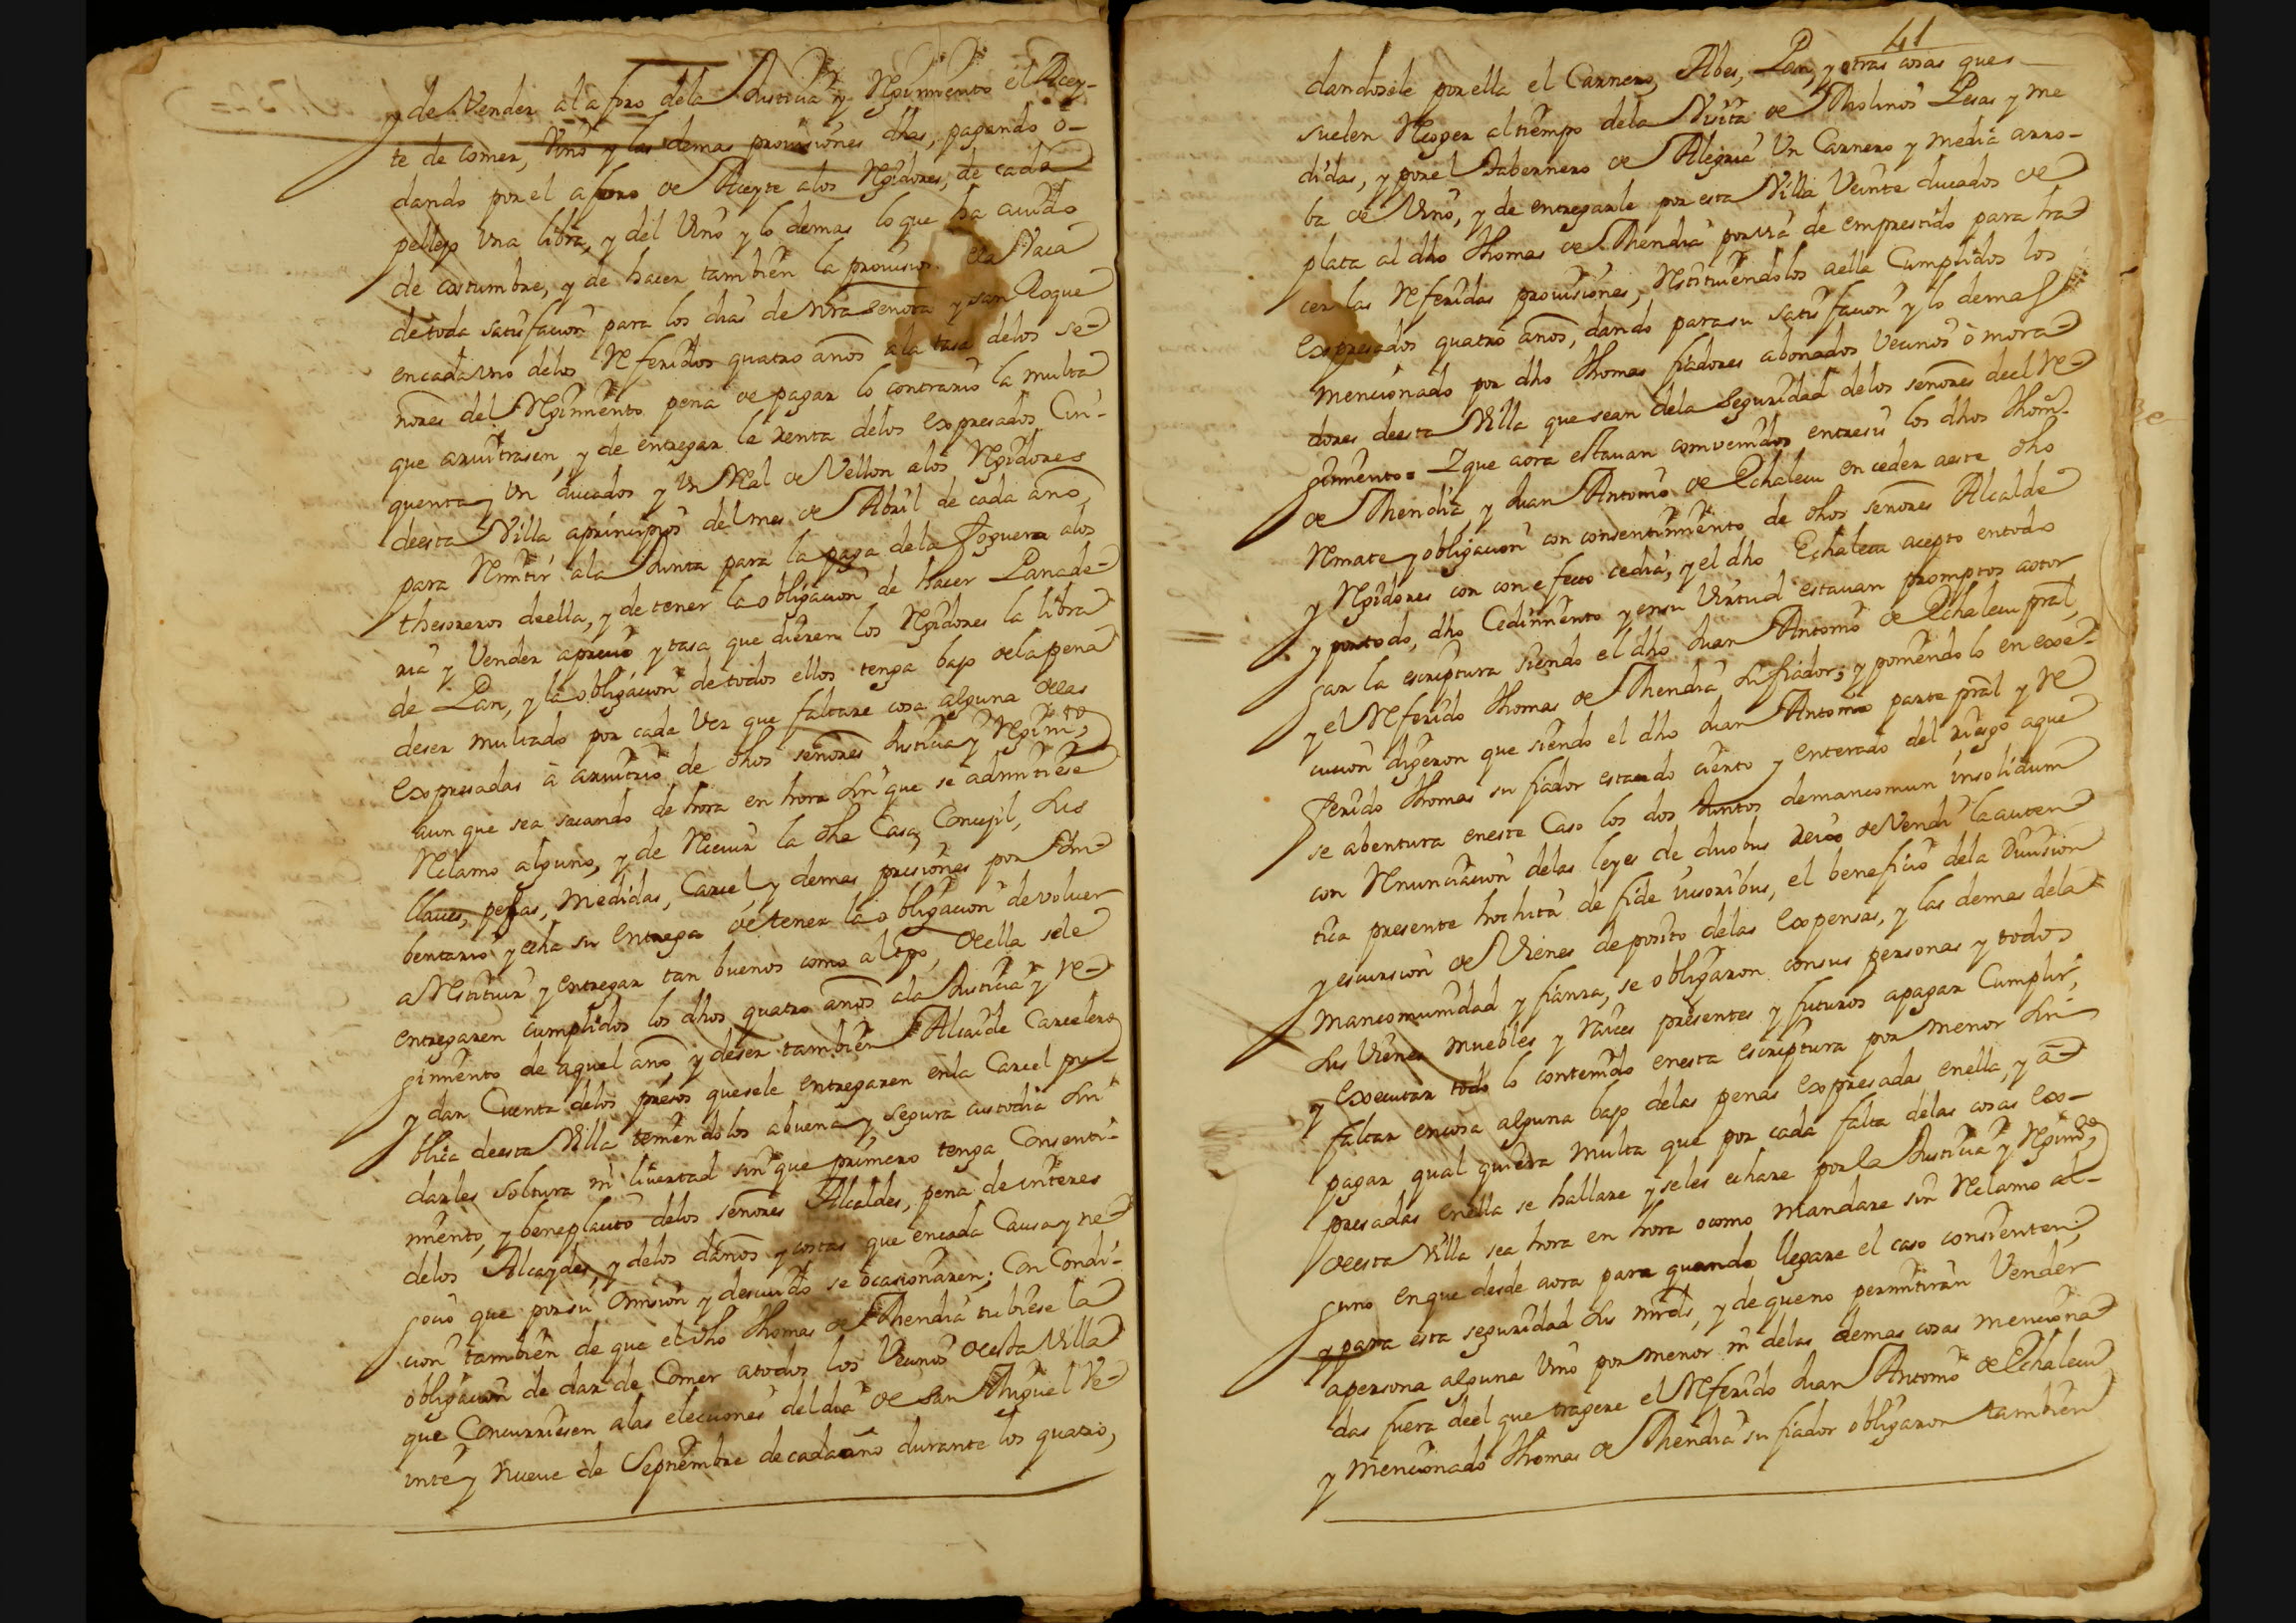 y de Vender al aforo dela Justicia y Regimiento el Acey-
te de comer, Vino y las demas provisiones dhas, pagando o-
dando por el aforo de Aceyte alos Regidores, de cada
pellejo una libra, y del Vino y lo demas lo que ha avido
de costumbre, y de hacer tambien la provision dela Vaca
de toda satisfacion para los dias de nra Senora y san Roque
encadauno delos Referidos quatro años a la tasa delos se-
ñores del Regimiento pena de pagar lo contrario la multa
que arvitrasen, y de entregar la renta delos expresados Cin-
quenta y Un ducados y Un Real de Vellon alos Regidores
deesta Villa aprincipios del mes de Abril de cada año,
para Remitir ala Junta para la paga dela foguera alos
thesoreros deella, y de tener la obligacion de hacer Panade-
ria y Vender aprecio y tasa que dieren los Regidores la libra
de Pan, y la obligacion de todos ellos tenga bajo dela pena
deser multado por cada Vez que faltare cosa alguna delas
expresadas à arvitrio de dhos señores Justicia y Regimto,
aun que sea sacando de hora en hora sin que se admitiese
Reclamo alguno, y de Recivir la dha Casa Concejil, sus
llaves, pesas, Medidas, Carcel, y demas prisiones por Ym-
bentario y echa su entrega de tener la obligacion devolver
a Restituir y entregar tan buenos como al tpo, deella sele
entregaren cumplidos los dhos quatro años ala Justicia y Re-
gimiento de aquel año, y deser tambien Alcaide Carcelero
y dar Cuenta delos presos quesele entregaren enla Carcel pu-
blica deesta Villa teniendolos abuena y segura custodia sin
darles soltura ni livertad sin que primero tenga Consenti-
miento, y beneplacito delos señores Alcaldes, pena de interes
delos Alcaydes, y delos daños y costas que encada Causa y ne-
gocio que porsu Omision y descuido se ocasionaren; Con Condi-
cion tambien de que el dho Thomas de Mendia tubiese la
obligacion de dar de Comer atodos los Vecinos deesta Villa
que Concurriesen alas elecciones deldia de San Miguel Ve-
inte y Nueve de Septiembre de cadaaño durante los quatro,
41
dandosele por ella el Carnero, Abes, Pan, y otras cosas que
suelen Recoger altiempo dela Visita de Molinos Pesas y me
didas, y porel Tabernero de Alegria Un Carnero y media arro-
ba de Vino, y de entregarle por esta Villa Veinte ducados de
plata al dho Thomas de Mendia porvia de emprestido para ha
cer las Referidas provisiones, Restituiendolos aella Cumplidos los
expresados quatro años, dando parasu satisfacion y lo demas
mencionado por dho Thomas fiadores abonados Vecinos ò mora
dores deesta Villa que sean dela Seguridad delos señores deel Re-
gimiento= Y que aora estavan convenidos entresi los dhos Thoms
de Mendia y Juan Antonio de Echalecu en ceder aeste dho
Remate y obligacion con consentimiento de dhos señores Alcalde
y Regidores con con efecto cedia, y el dho Echalecu acepto entodo
y portodo, dho Cedimiento y ensu Virtud estavan promptos aotor
gar la escriptura siendo el dho Juan Antonio de Echalecu pral,
y el Referido Thomas de Mendia su fiador; y poniendolo en exse-
cucion dijeron que siendo el dho Juan Antonio parte pral y Re
ferido Thomas su fiador estando cierto y enterado del riesgo aque
se abentura eneste Caso los dos Juntos demancomun insolidum
con Renunciacion delas leyes de duobus reus deVendi la auten
tica presente hochita de fide iusoribus, el beneficio dela Division
y escursion de Vienes deposito delas expensas, y las demas dela
mancomunidad y fianza, se obligaron consus personas y todos
sus Vienes muebles y raices presentes y futuros apagar Cumplir,
y executar todo lo contenido enesta escriptura por menor sin
faltar encosa alguna bajo delas penas expresadas enella, y à
pagar qual quiera multa que por cada falta delas cosas ex-
presadas enella se hallare y seles echare porla Justicia y Regimto,
deesta Villa sea hora en hora ocomo mandare sin Reclamo al-
guno enque desde aora para quando llegare el caso consienten;
y para esta seguridad sus mrds, y de queno permitiran Vender
apersona alguna Vino por menor ni delas demas cosas menciona
das fuera deel que tragere el Referido Juan Antonio de Echalecu
y mencionado Thomas de Mendia su fiador obligaron tambien